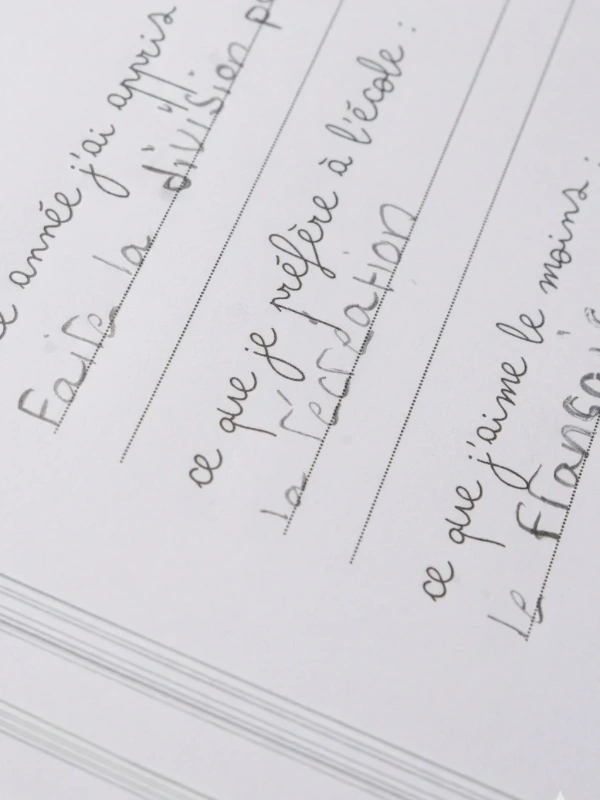 année j'ai appris
Faire la division
ce que je préfère à l'école :
la récréation
ce que j'aime le moins :
le